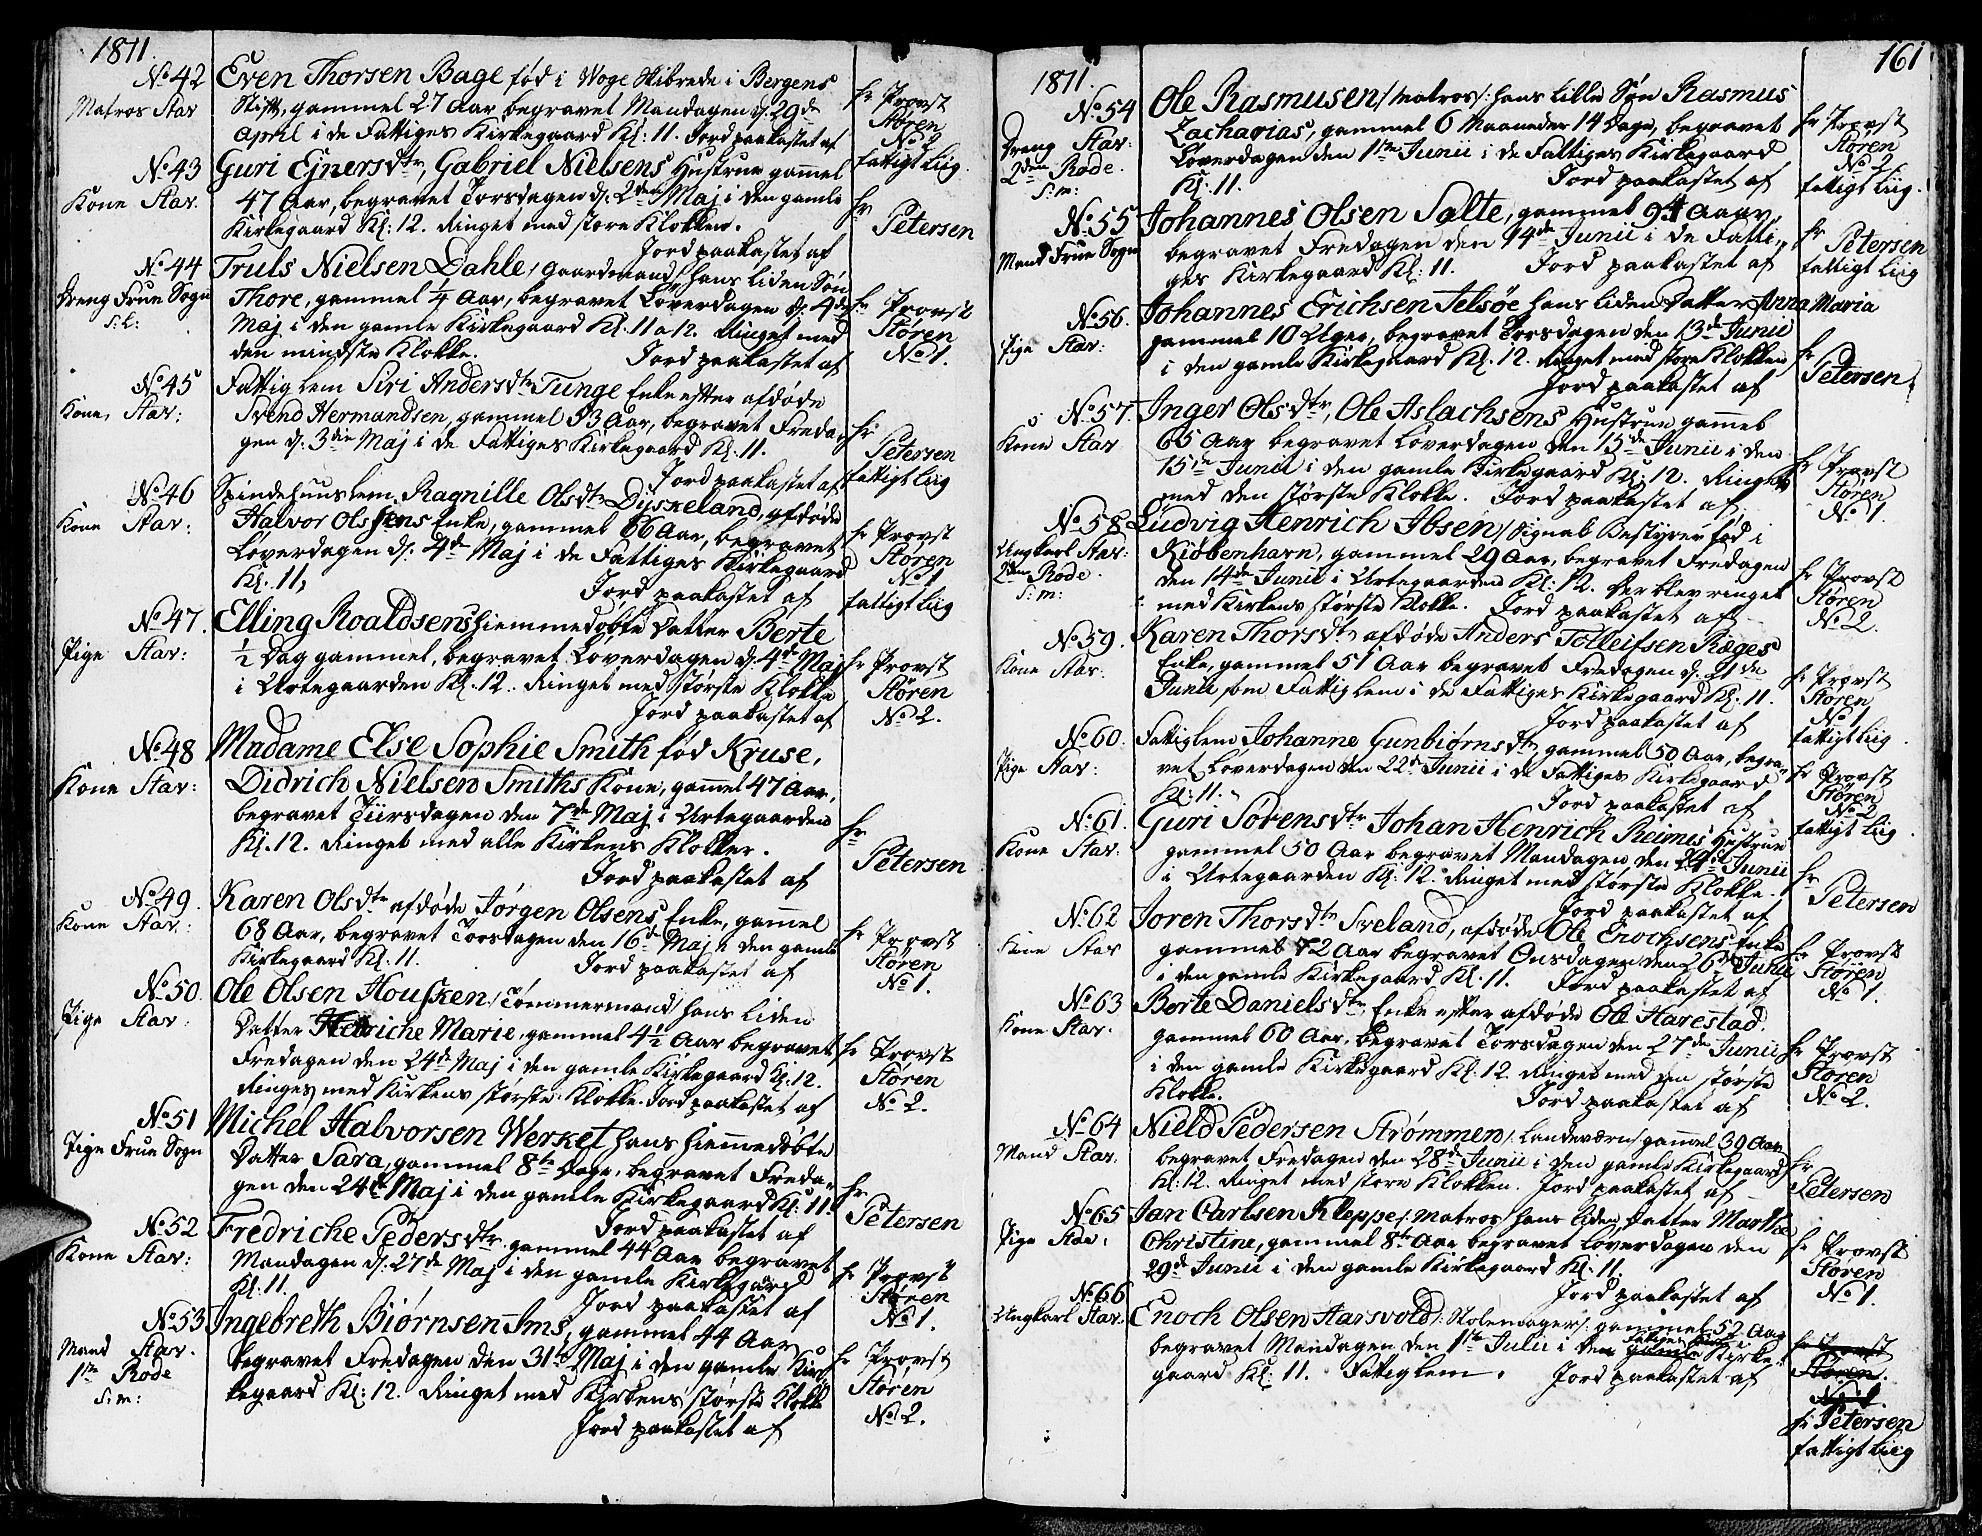 1811.
No 42
Matros Stav
Even Thorsen Bage fød i Woge Skibrede i Bergens
Stift, gammel 27 Aar begravet Mandagen d. 29de
April i de Fattiges Kirkegaard Kl: 11. Jord paakastet af
hr Provst
Støren
No 2
fattigt Liig.
No 43
Kone Stav.
Guri Ejnersdtr, Gabriel Nielsens Hustrue gammel
47 Aar, begravet Torsdagen d. 2den Maj i den gamle
Kirkegaard Kl: 12. Ringet med store Klokken.
Jord paakastet af
hr
Petersen
No 44
Dreng Frue Sogn
s: l:
Truls Nielsen Dahle, Gaardmand, hans liden Søn
Thore, gammel 1/4 Aar, begravet Løverdagen d. 4de
Maj i den gamle Kirkegaard Kl. 11 a 12. Ringet med
den mindste Klokke.
Jord paakastet af
hr Provst
Støren
No 1.
No 45
Kone, Stav:
Fattiglem Siri Andersdtr Tunge Enke efter afdøde
Svend Hermandsen, gammel 93 Aar, begravet Freda-
gen d. 3die Maj i de Fattiges Kirkegaard Kl. 11.
Jord paakastet af
hr
Petersen
fattigt Liig
No 46
Kone Stav:
Spindehuuslem Ragnille Olsdtr Dyskeland, afdøde
Halvor Olsens Enke, gammel 66 Aar, begravet
Løverdagen d. 4de Maj i de Fattiges Kirkegaard
Kl. 11,
Jord paakastet af
hr Provst
Støren
No 1
fattigt Liig
No 47.
Pige Stav:
Elling Roaldsens hiemmedøbte Datter Berte
1/2 Dag gammel, begravet Løverdagen d. 4de Maj
i Urtegaarden Kl. 12. Ringet med største Klokke
Jord paakastet af
hr Provst
Støren
No 2.
No 48
Kone Stav:
Madame Else Sophie Smith fød Kruse,
Didrich Nielsen Smiths Kone, gammel 47 Aar,
begravet Tiirsdagen den 7de Maj i Urtegaarden
Kl. 12. Ringet med alle Kirkens Klokker.
Jord paakastet af
hr
Petersen
No 49.
Kone Stav.:
Karen Olsdtr afdøde Jørgen Olsens Enke, gammel
68 Aar, begravet Torsdagen den 16de Maj i den gamle
Kirkegaard Kl. 11.
Jord paakastet af
hr Provst
Støren
No 1.
No 50.
Pige Stav:
Ole Olsen Housken, Tømmermand, hans liden
Datter Henriche Marie, gammel 4 1/2 Aar begravet
Fredagen den 24de Maj i den gamle Kirkegaard Kl. 12.
Ringet med Kirkens største Klokke. Jord paakastet af
hr Provst
Støren
No 2.
No 51
Pige Frue Sogn
Michel Halvorsen Werket hans hiemmedøbte
Datter Sara, gammel 8te Dage, begravet Freda-
gen den 24de Maj i den gamle Kirkegaard Kl. 11
Jord paakastet af
hr
Petersen
No 52
Kone Stav:
Fredriche Pedersdtr gammel 44 Aar begravet
Mandagen d. 27de Maj i den gamle Kirkegaard
Kl. 11.
Jord paakastet af
hr Provst
Støren
No 1.
No 53
Mand Stav.
1ste Rode
s: m:
Ingebreth Biørnsen Ims, gammel 44 Aar,
begravet Fredagen den 31te Maj i den gamle Kir-
kegaard Kl: 12. Ringet med Kirkens største Klokke
Jord paakastet af
hr Provst
Støren
No 2.
161
1811.
No 54
Dreng Stav:
2den Rode.
s: m:
Ole Rasmusen /: Matros :/ hans lille Søn Rasmus
Zacharias, gammel 6 Maaneder 14 Dage, begravet
Løverdagen den 1ste Junii i de Fattiges Kirkegaard
Kl: 11.
Jord paakastet af
hr Provst
Støren
No 2
fattigt Liig.
No 55
Mand Frue Sogn
Johannes Olsen Salte, gammel 94 Aar,
begravet Fredagen den 14de Junii i de Fatti-
ges Kirkegaard Kl: 11.
Jord paakastet af
hr
Petersen
fattigt Liig
No 56.
Pige Stav:
Johannes Erichsen Jelsøe hans liden Datter Anna Maria
gammel 10 Uger, begravet Torsdagen den 13de Junii
i den gamle Kirkegaard Kl. 12. Ringet med store Klokken
Jord paakastet af
hr
Petersen.
No 57.
Kone Stav
Inger Olsdtr, Ole Aslachsens Hustrue gammel
65 Aar begravet Løverdagen den 15de Junii i den
15de Junii i den gamle Kirkegaard Kl. 12. Ringet
med den største Klokke. Jord paakastet af
hr Provst
Støren
No 1.
No 58
Ungkarl Stav:
2den Rode.
s: m:
Ludvig Henrich Ibsen /: Signal Bestyrer fød i
Kiøbenhavn, gammel 29 Aar, begravet Fredagen
den 14de Junii i Urtegaarden Kl. 12. Der blev ringet
med Kirkens største Klokke. Jord paakastet af
hr Provst
Støren
No 2.
No 59.
Kone Stav.
Karen Thorsdtr afdøde Anders Tolleifsen Ræges
Enke, gammel 51 Aar begravet Fredagen d. 21de
Junii som Fattiglem i de Fattiges Kirkegaard Kl. 11.
Jord paakastet af
hr Provst
Støren
No 1
fattigt Liig
No 60.
Pige Stav:
Fattiglem Johanne Gunbiørnsdtr, gammel 50 Aar, begra-
vet Løverdagen den 22de Junii i de Fattiges Kirkegaard
Kl: 11.
Jord paakastet af
hr Provst
Støren
No 2
fattigt Liig
No 61.
Kone Stav:
Guri Sørensdtr Johan Henrich Reimis Hustrue
gammel 50 Aar begravet Mandagen den 24de Junii
i Urtegaarden Kl. 12. Ringet med største Klokke.
Jord paakastet af
hr
Petersen
No 62
Kone Stav
Joren Thorsdtr Sveland, afdøde Ole Enochsens Enke
gammel 72 Aar begravet Onsdagen den 26de Junii
i den gamle Kirkegaard Kl. 11. Jord paakastet af
hr Provst
Støren
No 1.
No 63
Kone Stav.
Berte Danielsdtr, Enke efter afdøde Ole Harestad.
gammel 60 Aar, begravet Torsdagen den 27de Junii
i den gamle Kirkegaard Kl. 12. Ringet med den største
Klokke.
Jord paakastet af
hr Provst
Støren
No 2.
No 64
Mand Stav.
Nield Pedersen Strømmen /: Landeværn :/ gammel 30 Aar
begravet Fredagen den 28de Junii i den gamle Kirkegaard
Kl: 12. Ringet med store Klokken. Jord paakastet af
hr
Petersen
No 65
Pige Stav:
Jan Carlsen Kleppe /: Matros :/ hans liden Datter Marthe
Christine, gammel 8te Aar begravet Løverdagen den
29de Junii i den gamle Kirkegaard Kl. 11.
Jord paakastet af
hr Provst
Støren
No 1.
No 66
Ungkarl Stav.
Enoch Olsen Aarsvold /: Stolemager :/ gammel 52 Aar
begravet Mandagen den 1ste Julii i den gamle Kirke-
gaard Kl: 11. Fattiglem. Jord paakastet af
hr Provst
Støren.
No 1.
hr Petersen
fattigt Liig